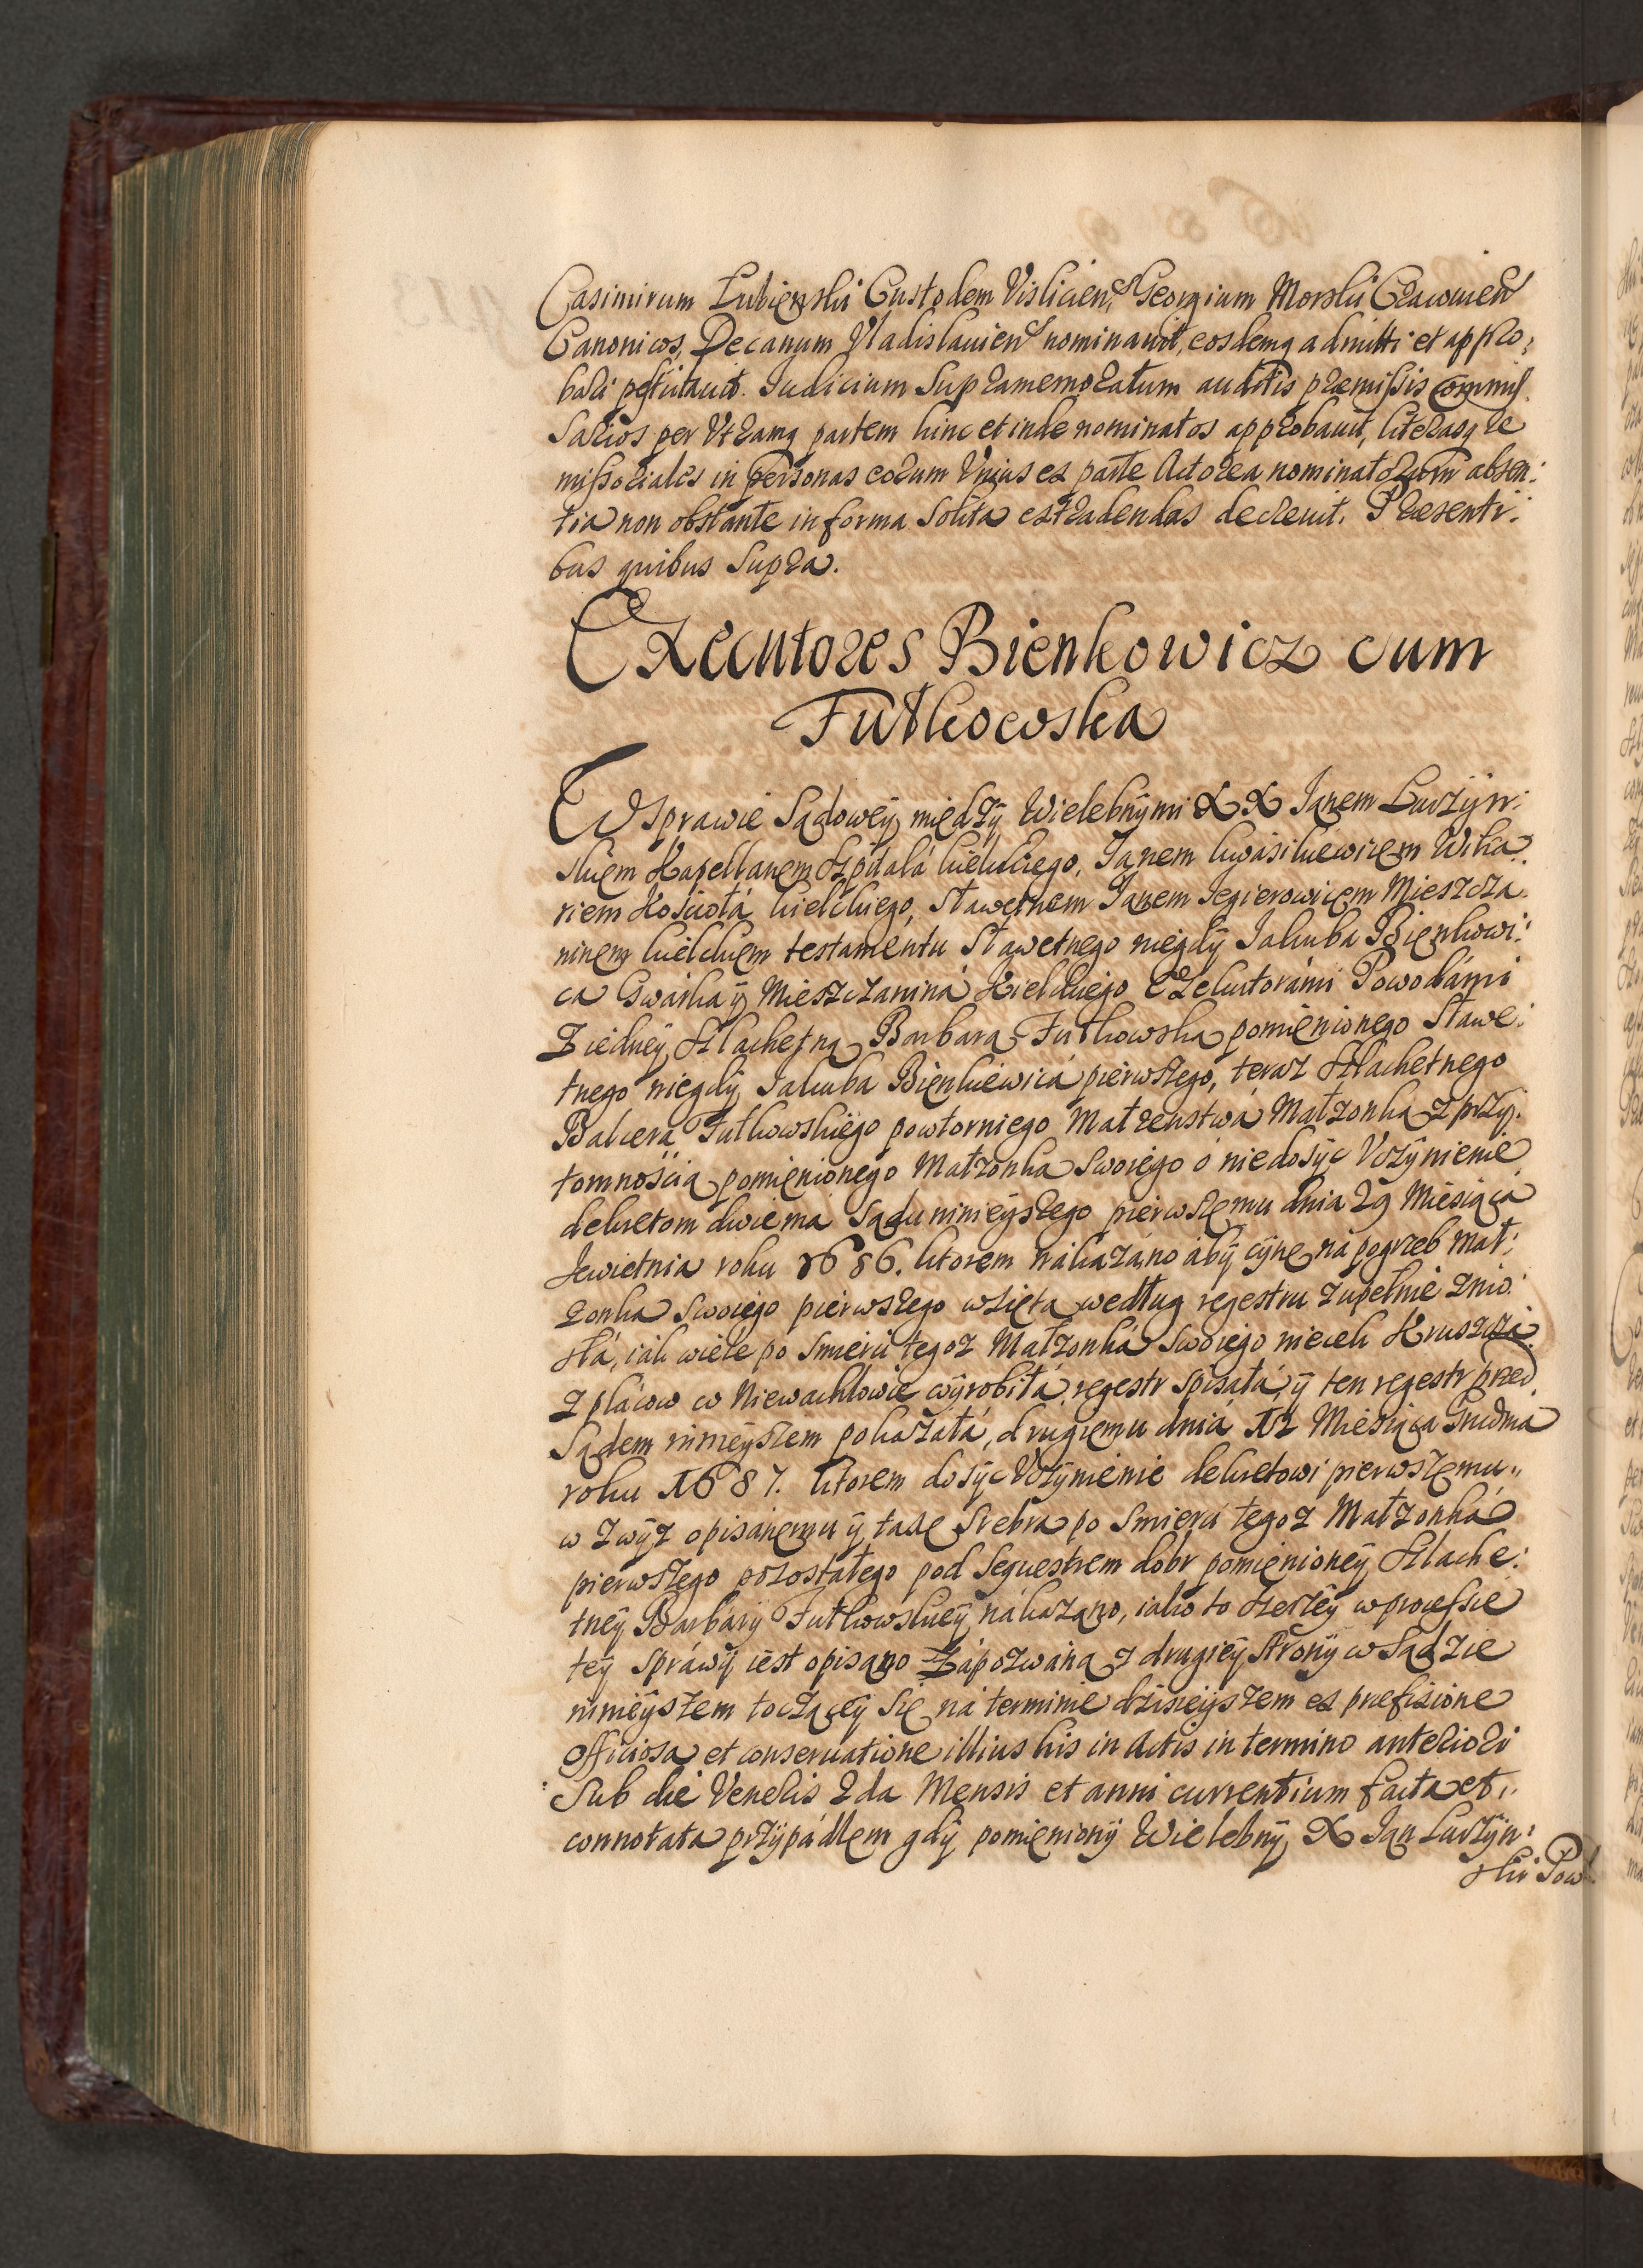 Casimirum Łubięnski Custodem Vislicień, Georgium Morski Cracouień
Canonicos, Decanum Vladislauień nominauit, eosdemq admitti et appro:
bari postulauit. Iudicium Supramemoratum auditis præmissis commis
sarios per Vtramq partem hinc et inde nominatos approbauit, literasq re
missoriales in Personas eorum Vnius ex parte Actorea nominatorum absen:
tia non obstante in forma Solita extradendas decreuit. Præsenti:
bus quibus Supra.
Executores Bienkowicz cum
Futkowska
W Sprawie Sądowey między Wielebnymi X X Janem Łurzyn:
skiem Kapellanem Szpitala kieleckiego, Janem kwasikiewicem Wika
riem Kościoła kielckiego, Sławetnem Janem Jegierowicem Mieszcza
ninem kielckiem testamentu Sławetnego niegdy Jakuba Bienkowi:
ca Gwarka y Mieszczanina Kielckiego Exekutorami Powodami
Z iedney Szlachetną Barbarą Futkowską pomienionego Sławe:
tnego niegdy Jakuba Bienkiewica pierwszego, teraz Szlachetnego
Balcera Futkowskiego powtorniego Małżenstwa Małzonką z przy:
tomnością pomienionego Małzonka Swoiego o niedosyc Vczynienie
dekretom dwiema Sądu ninieyszego pierwszemu dnia 29 Miesiąca
kwietnia roku 1686. ktorem nakazano aby cynę na pogrzeb Mał:
zonka Swoiego pierwszego wziętą według regestru zupełnie znio:
sła, iak wiele po Smierci tegoz Małzonka Swoiego niecek Kruszcza
z placow w Niewachlowie wyrobiła, regestr Spisała, y ten regestr przed
Sądem ninieyszem pokazała, drugiemu dnia 12 Miesiąca Grudnia
roku 1687. ktorem dosyc Vczynienie dekretowi pierwszemu
w zwyz opisanemu y taxę Srebra po Smierci tegoz Małzonka
pierwszego pozostałego pod Sequestrem dobr pomienioney Szlache:
tney Barbary Futkowskiey nakazano, iako to szerzey w processie
tey Sprawy iest opisano Zapozwaną z drugiey Strony w Sądzie
ninieyszem toczącey Się na terminie dzisieyszem ex præfixione
officiosa et conseruatione illius his in Actis in termino anteriori
Sub die Veneris 2da Mensis et anni currentium facta et
connotata przypadłem gdy pomieniony Wielebny X Jan Łurzyn:
ski Pow